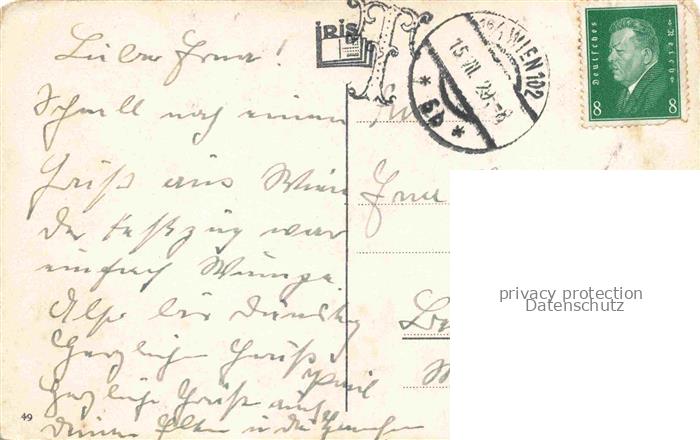 Liebe Erna!
Schnell noch einen
Gruß aus Wien
Der Festzug war
einfach
Also bis Dienstag
Herzliche Grüße
Paul
Herzliche Grüße auch
Deinen Eltern u.
49
IRIS
T
WIEN 102
15.VII.29
* 6b *
Deutsches Reich
8 8
Erna
privacy protection
Datenschutz